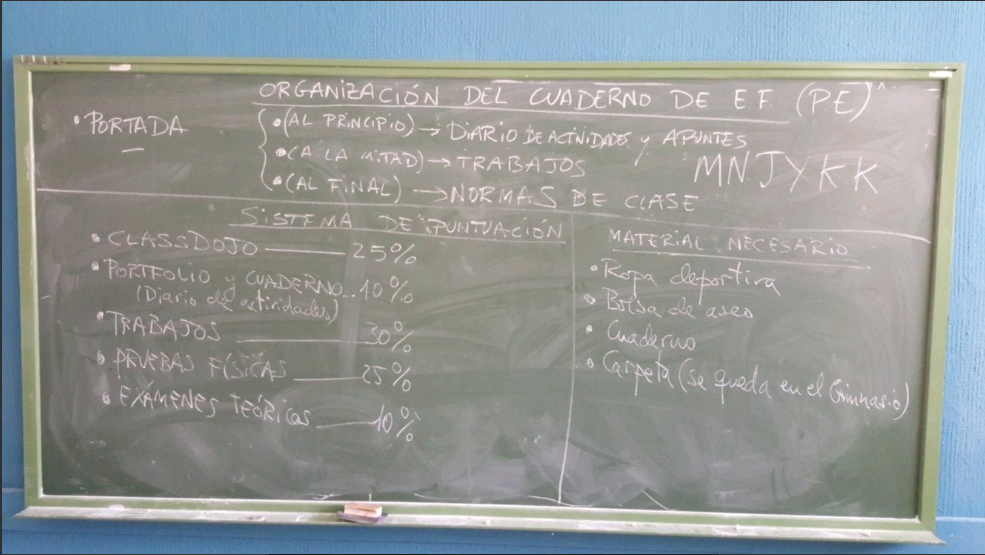 ORGANIZACIÓN DEL CUADERNO DE E.F. (P.E)
• PORTADA
•(AL PRINCIPIO) → DIARIO DE ACTIVIDADES y APUNTES
•(A LA MITAD) → TRABAJOS
•(AL FINAL) → NORMAS DE CLASE
MNJYKK
SISTEMA DE PUNTUACIÓN
• CLASSDOJO — 25%
• PORTFOLIO y CUADERNO — 10%
(Diario de actividades)
• TRABAJOS — 30%
• PRUEBAS FÍSICAS — 25%
• EXÁMENES TEÓRICOS — 10%
MATERIAL NECESARIO
• Ropa deportiva
• Bolsa de aseo
• Cuaderno
• Carpeta (se queda en el Gimnasio)